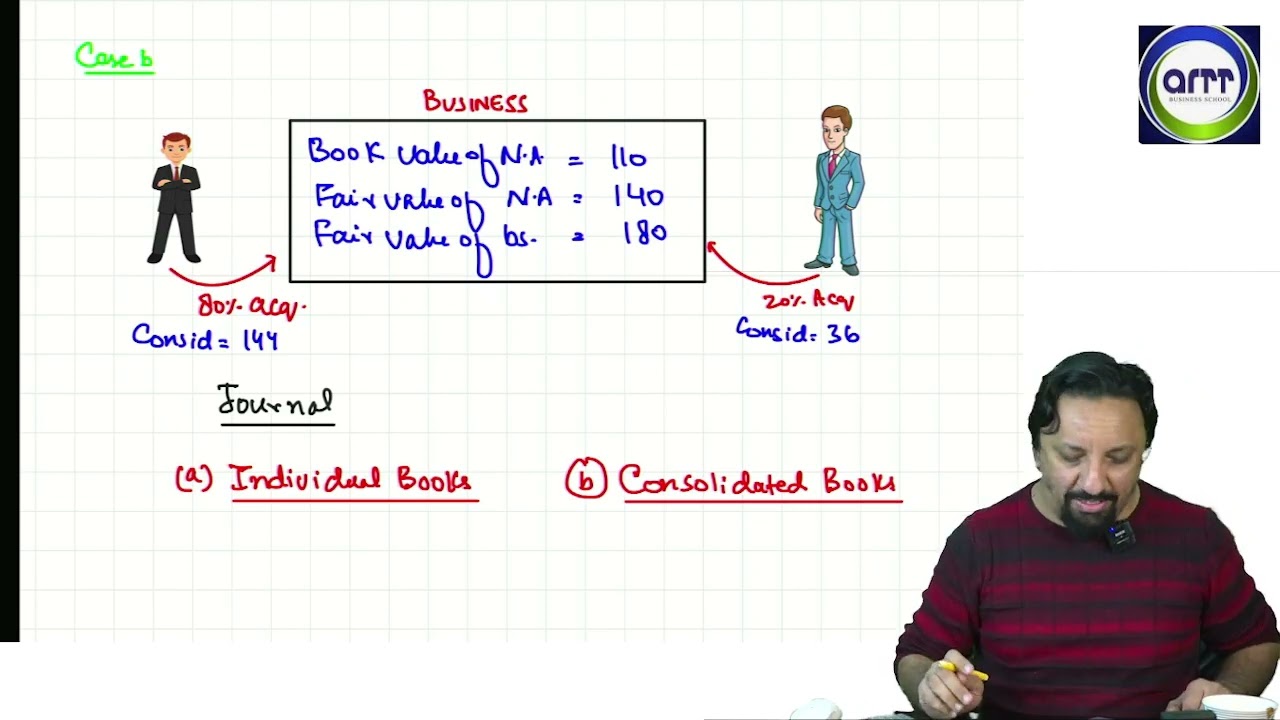 Case b
artt
BUSINESS SCHOOL
BUSINESS
Book value of N.A = 110
Fair value of N.A = 140
Fair value of bs. = 180
80% acq.
Consid = 144
20% Acq
Consid = 36
Journal
(a) Individual Books
(b) Consolidated Books